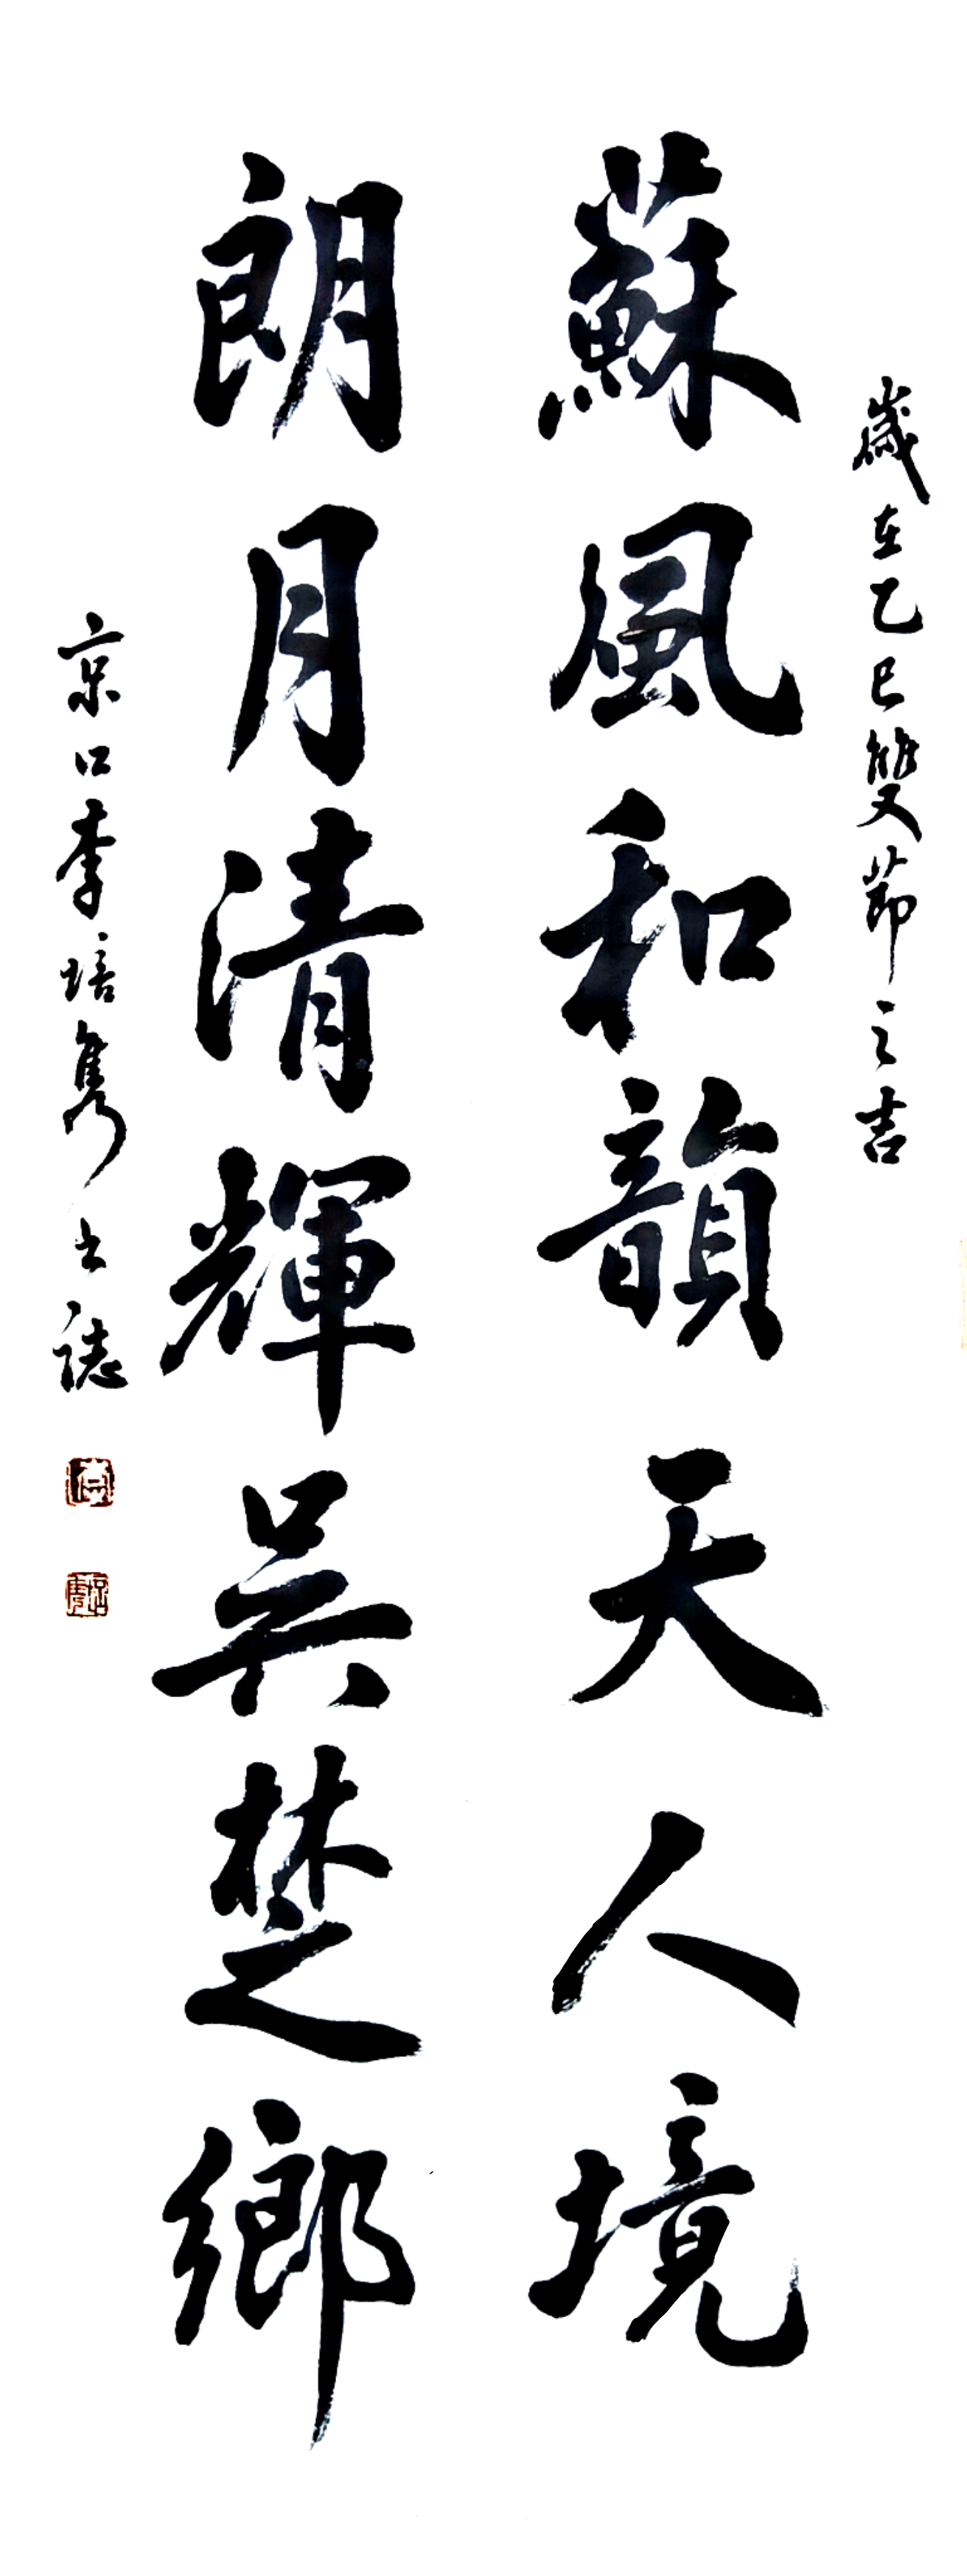 歲在乙巳雙節之吉
蘇風和韻天人境
朗月清輝吳楚鄉
京口李培雋書誌